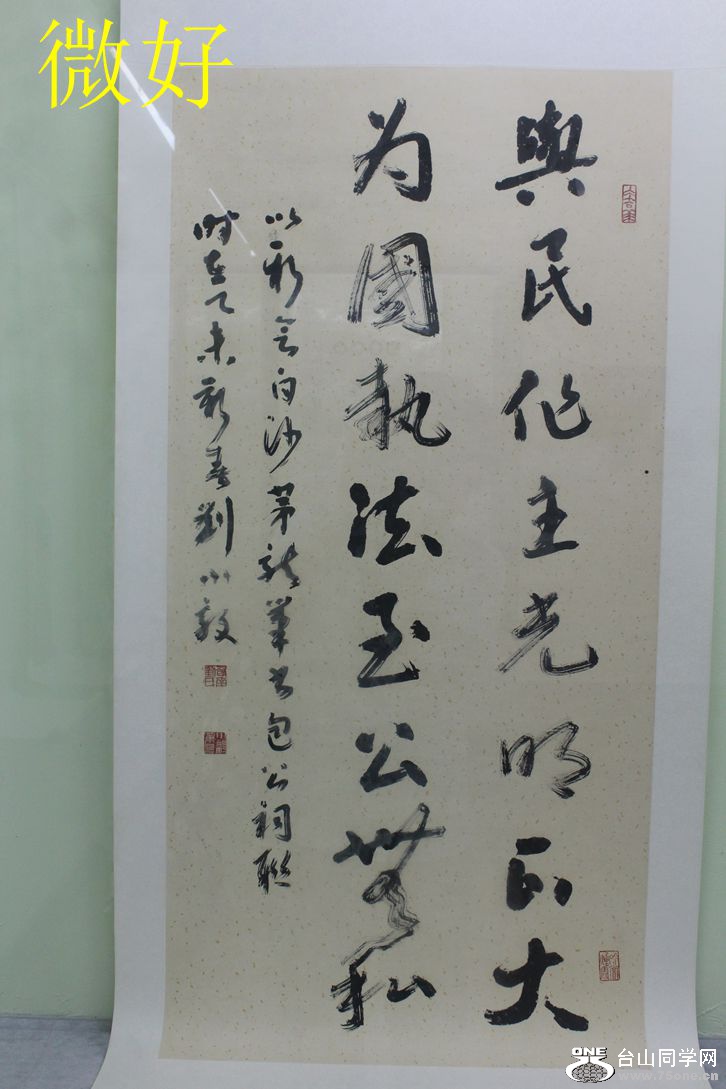 微好
與民作主光明正大
为國執法至公無私
以新會白沙茅龙筆书包公祠聯
时在乙未新春劉小毅
ONE
台山同学网
www.75one.cn